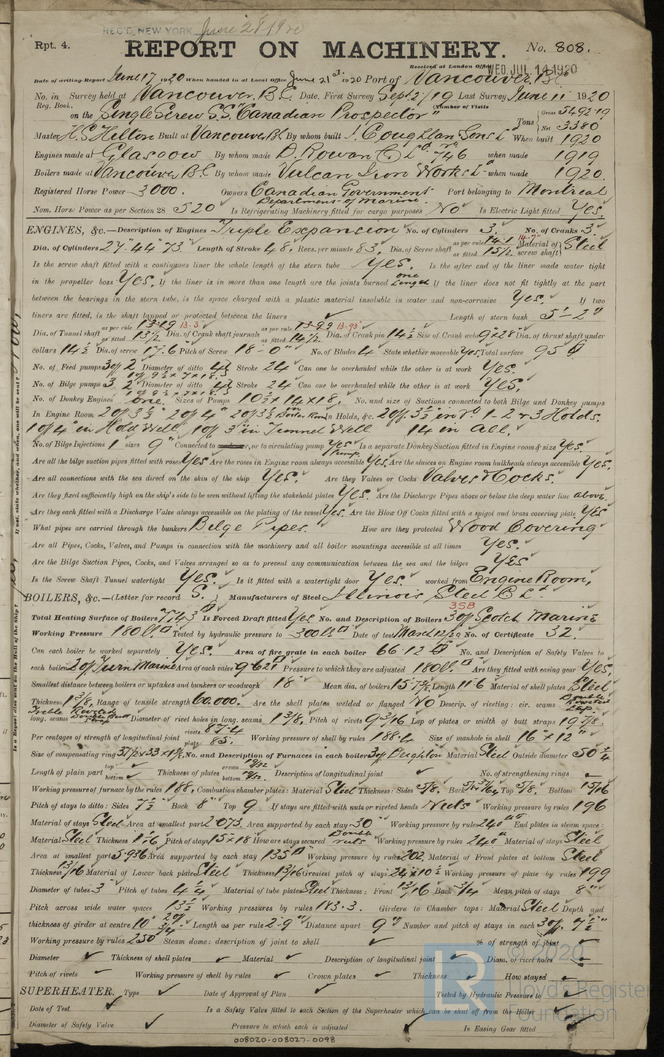 REC'D NEW YORK June 28 1920
Rpt. 4. REPORT ON MACHINERY. No. 808.
Received at London Office WED JUL 14 1920
Date of writing Report June 17 1920 When handed in at Local Office June 21st 1920 Port of Vancouver, B.C.
No. in Survey held at Vancouver, B.C. Date, First Survey Sept 2/19 Last Survey June 11 1920
Reg. Book. (Number of Visits
on the Single Screw S.S. "Canadian Prospector" Tons Gross 5492.19 Net 3380
Master H.S. Hilton Built at Vancouver B.C. By whom built J. Coughlan Sons Ld When built 1920
Engines made at Glasgow By whom made D. Rowan Co Ld No 746 when made 1919
Boilers made at Vancouver B.C. By whom made Vulcan Iron Works Ld when made 1920
Registered Horse Power 3000. Owners Canadian Government Department of Marine. Port belonging to Montreal
Nom. Horse Power as per Section 28 520 Is Refrigerating Machinery fitted for cargo purposes No Is Electric Light fitted Yes.
ENGINES, &c.—Description of Engines Triple Expansion No. of Cylinders 3. No. of Cranks 3
Dia. of Cylinders 27-44-73 Length of Stroke 48. Revs. per minute 83. Dia. of Screw shaft as per rule 14.1 as fitted 15½ Material of screw shaft Steel
Is the screw shaft fitted with a continuous liner the whole length of the stern tube Yes. Is the after end of the liner made water tight
in the propeller boss Yes. If the liner is in more than one length are the joints burned one length If the liner does not fit tightly at the part
between the bearings in the stern tube, is the space charged with a plastic material insoluble in water and non-corrosive Yes. If two
liners are fitted, is the shaft lapped or protected between the liners ✓ Length of stern bush 5'-2"
Dia. of Tunnel shaft as per rule 13.19 13.3 as fitted 13½ Dia. of Crank shaft journals as per rule 13.99 13.95 as fitted 14½ Dia. of Crank pin 14½ Size of Crank webs 9×28 Dia. of thrust shaft under
collars 14½ Dia. of screw 17-6 Pitch of Screw 18-0" No. of Blades 4 State whether moveable Yes Total surface 95
No. of Feed pumps 2 Diameter of ditto 4½ Stroke 24 Can one be overhauled while the other is at work Yes.
No. of Bilge pumps 2 Diameter of ditto 4½ Stroke 24 Can one be overhauled while the other is at work Yes.
No. of Donkey Engines One. Sizes of Pumps 10½×14×18. No. and size of Suctions connected to both Bilge and Donkey pumps
In Engine Room 2 of 3½ 2 of 4" 2 of 3½ Boiler Room In Holds, &c. 2 of 3½ in No 1-2 & 3 Holds.
1 of 4 in Hold Well 1 of 3" in Tunnel Well 14 in All.
No. of Bilge Injections 1 sizes 9" Connected to condenser, or to circulating pump Yes Pump. Is a separate Donkey Suction fitted in Engine room & size Yes.
Are all the bilge suction pipes fitted with roses Yes Are the roses in Engine room always accessible Yes. Are the sluices on Engine room bulkheads always accessible Yes.
Are all connections with the sea direct on the skin of the ship Yes. Are they Valves or Cocks Valves & Cocks.
Are they fixed sufficiently high on the ship's side to be seen without lifting the stokehold plates Yes. Are the Discharge Pipes above or below the deep water line above.
Are they each fitted with a Discharge Valve always accessible on the plating of the vessel Yes. Are the Blow Off Cocks fitted with a spigot and brass covering plate Yes
What pipes are carried through the bunkers Bilge Pipes. How are they protected Wood Covering
Are all Pipes, Cocks, Valves, and Pumps in connection with the machinery and all boiler mountings accessible at all times Yes.
Are the Bilge Suction Pipes, Cocks, and Valves arranged so as to prevent any communication between the sea and the bilges Yes
Is the Screw Shaft Tunnel watertight Yes. Is it fitted with a watertight door Yes. worked from Engine Room.
BOILERS, &c.—(Letter for record S.) Manufacturers of Steel Illinois Steel Co Ld
Total Heating Surface of Boilers 7743 Is Forced Draft fitted Yes No. and Description of Boilers 3 of Scotch Marine 3SB
Working Pressure 180 lbs Tested by hydraulic pressure to 300 lbs Date of test March 12/20 No. of Certificate 32.
Can each boiler be worked separately Yes. Area of fire grate in each boiler 66.12 No. and Description of Safety Valves to
each boiler 2 of Twin Marine Area of each valve 9.621 Pressure to which they are adjusted 180 lbs. Are they fitted with easing gear Yes,
Smallest distance between boilers or uptakes and bunkers or woodwork 18" Mean dia. of boilers 15-7⅞ Length 11-6 Material of shell plates Steel
Thickness 1⅜ Range of tensile strength 60.000. Are the shell plates welded or flanged No Descrip. of riveting: cir. seams Double Riveted Lap
long. seams Treble Riveted Double Butt Strap Diameter of rivet holes in long. seams 1⅜ Pitch of rivets 9 3/16 Lap of plates or width of butt straps 19⅞.
Per centages of strength of longitudinal joint rivets 87.4 plate 85. Working pressure of shell by rules 188.4 Size of manhole in shell 16"×12"
Size of compensating ring 37½×33×1⅜ No. and Description of Furnaces in each boiler 3 of Deighton Material Steel Outside diameter 50¼
Length of plain part top bottom ✓ Thickness of plates crown bottom 19/32 Description of longitudinal joint ✓ No. of strengthening rings
Working pressure of furnace by the rules 188, Combustion chamber plates: Material Steel Thickness: Sides ⅝. Back Top ⅝. Bottom 13/16
Pitch of stays to ditto: Sides 7½ Back 8" Top 9 If stays are fitted with nuts or riveted heads Nuts Working pressure by rules 196
Material of stays Steel Area at smallest part 2.073. Area supported by each stay 30" Working pressure by rules 240 End plates in steam space:
Material Steel Thickness 1 1/16 Pitch of stays 15×18 How are stays secured Double nuts Working pressure by rules 240 Material of stays Steel
Area at smallest part 5.986 Area supported by each stay 135 Working pressure by rules 202 Material of Front plates at bottom Steel
Thickness 13/16 Material of Lower back plate Steel Thickness 13/16 Greatest pitch of stays Working pressure of plate by rules 199
Diameter of tubes 3" Pitch of tubes 4¼ Material of tube plates Steel Thickness: Front 13/16 Back ¾ Mean pitch of stays 8"
Pitch across wide water spaces 13½ Working pressures by rules 183.3. Girders to Chamber tops: Material Steel Depth and
thickness of girder at centre 10" Length as per rule 2-9" Distance apart 9" Number and pitch of stays in each 3 of 7½"
Working pressure by rules 250 Steam dome: description of joint to shell ✓ % of strength of joint
Diameter ✓ Thickness of shell plates ✓ Material ✓ Description of longitudinal joint ✓ Diam. of rivet holes
Pitch of rivets ✓ Working pressure of shell by rules ✓ Crown plates ✓ Thickness ✓ How stayed
SUPERHEATER. Type ✓ Date of Approval of Plan ✓ Tested by Hydraulic Pressure to
Date of Test ✓ Is a Safety Valve fitted to each Section of the Superheater which can be shut off from the Boiler
Diameter of Safety Valve ✓ Pressure to which each is adjusted ✓ Is Easing Gear fitted
008020-008027-0098
© 2020
Lloyd's Register
Foundation